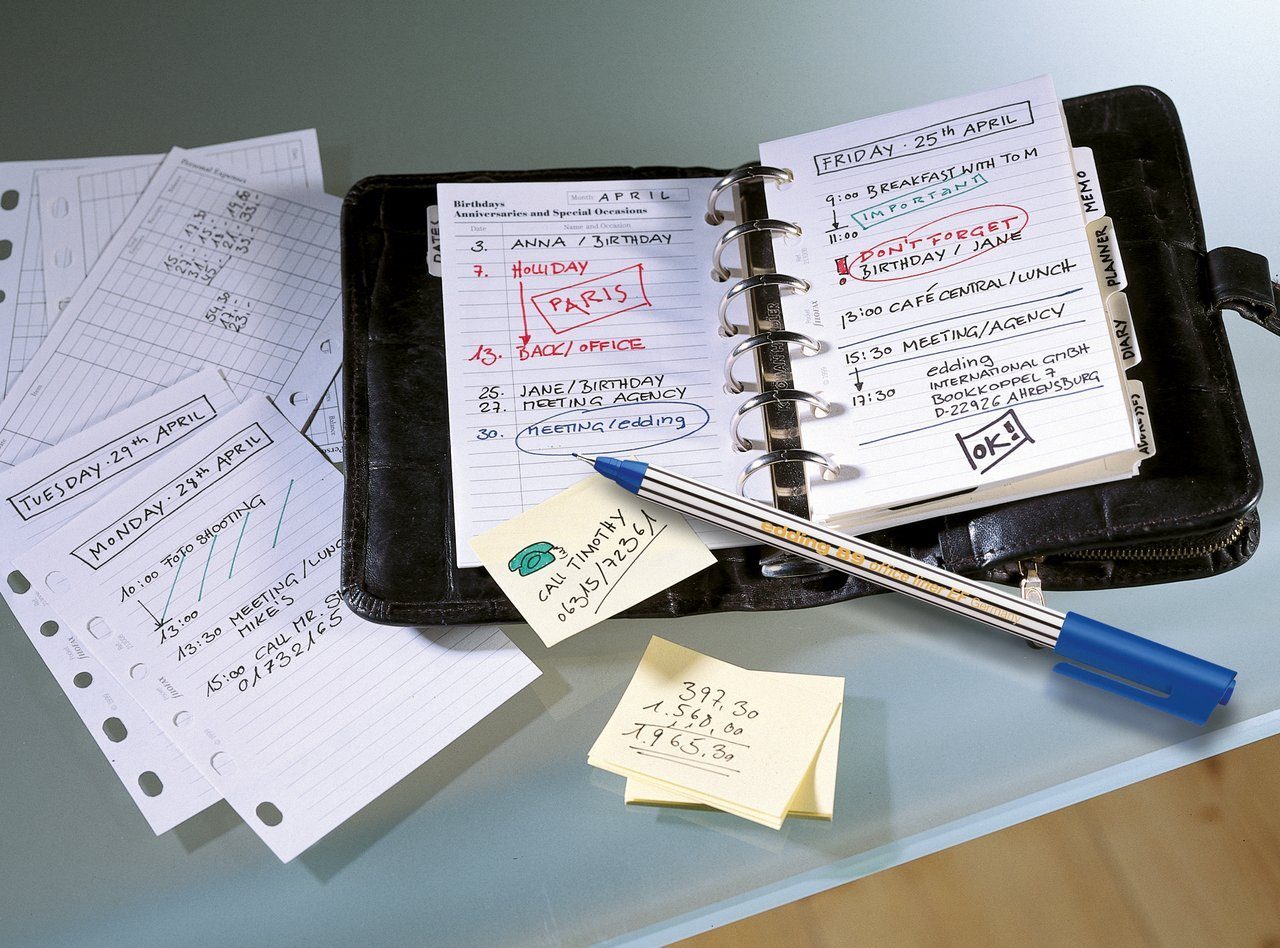 Personal Expenses
TUESDAY · 29th APRIL
MONDAY · 28th APRIL
10:00 FOTO SHOOTING
13:00
13:30 MEETING/LUNC
MIKE'S
15:00 CALL MR. S
01732165
DATES
Birthdays
Anniversaries and Special Occasions
Month APRIL
Date Name and Occasion
3. ANNA / BIRTHDAY
7. HOLLIDAY
PARIS
13. BACK/OFFICE
25. JANE/BIRTHDAY
27. MEETING AGENCY
30. MEETING/edding
CALL TIMOTHY
06315/72361
FRIDAY · 25th APRIL
9:00 BREAKFAST WITH TOM
IMPORTANT
11:00
DON'T FORGET
! BIRTHDAY / JANE
13:00 CAFÉ CENTRAL/LUNCH
15:30 MEETING/AGENCY
17:30
edding
INTERNATIONAL GMBH
BOOKKOPPEL 7
D-22926 AHRENSBURG
OK!
MEMO
PLANNER
DIARY
ADDRESSES
edding 89 office liner EF Germany
397,30
1.568,00
1.965,30